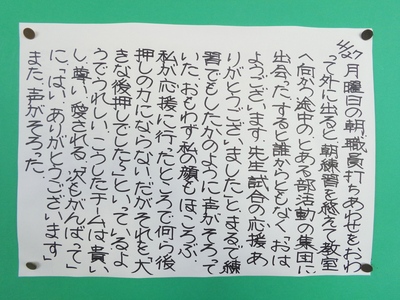 月曜日の朝、職員打ちあわせをおわ
って外に出ると、朝練習を終えて教室
へ向かう途中のとある部活動の集団に
出会った。すると誰からともなく、「おは
ようございます。先生、試合の応援あ
りがとうございました」と、まるで練
習でもしたかのように声がそろって
いた。おもわず私の顔もほころぶ。
私が応援に行ったところで何ら後
押しの力にならないだが、それを「大
きな後押しでした」といっているよ
うでうれしい。こうしたチームは貴い
し、尊い、愛される。「次もがんばって」
に、「はい、ありがとうございます」
また声がそろった。